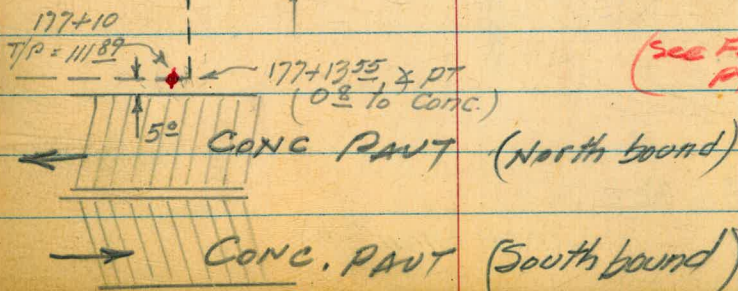 177+10
T/P = 111 89
177+13 55 ⊼ PT
(0 8 to Conc.)
(See
5 0
CONC PAVT (North bound)
CONC. PAVT (South bound)